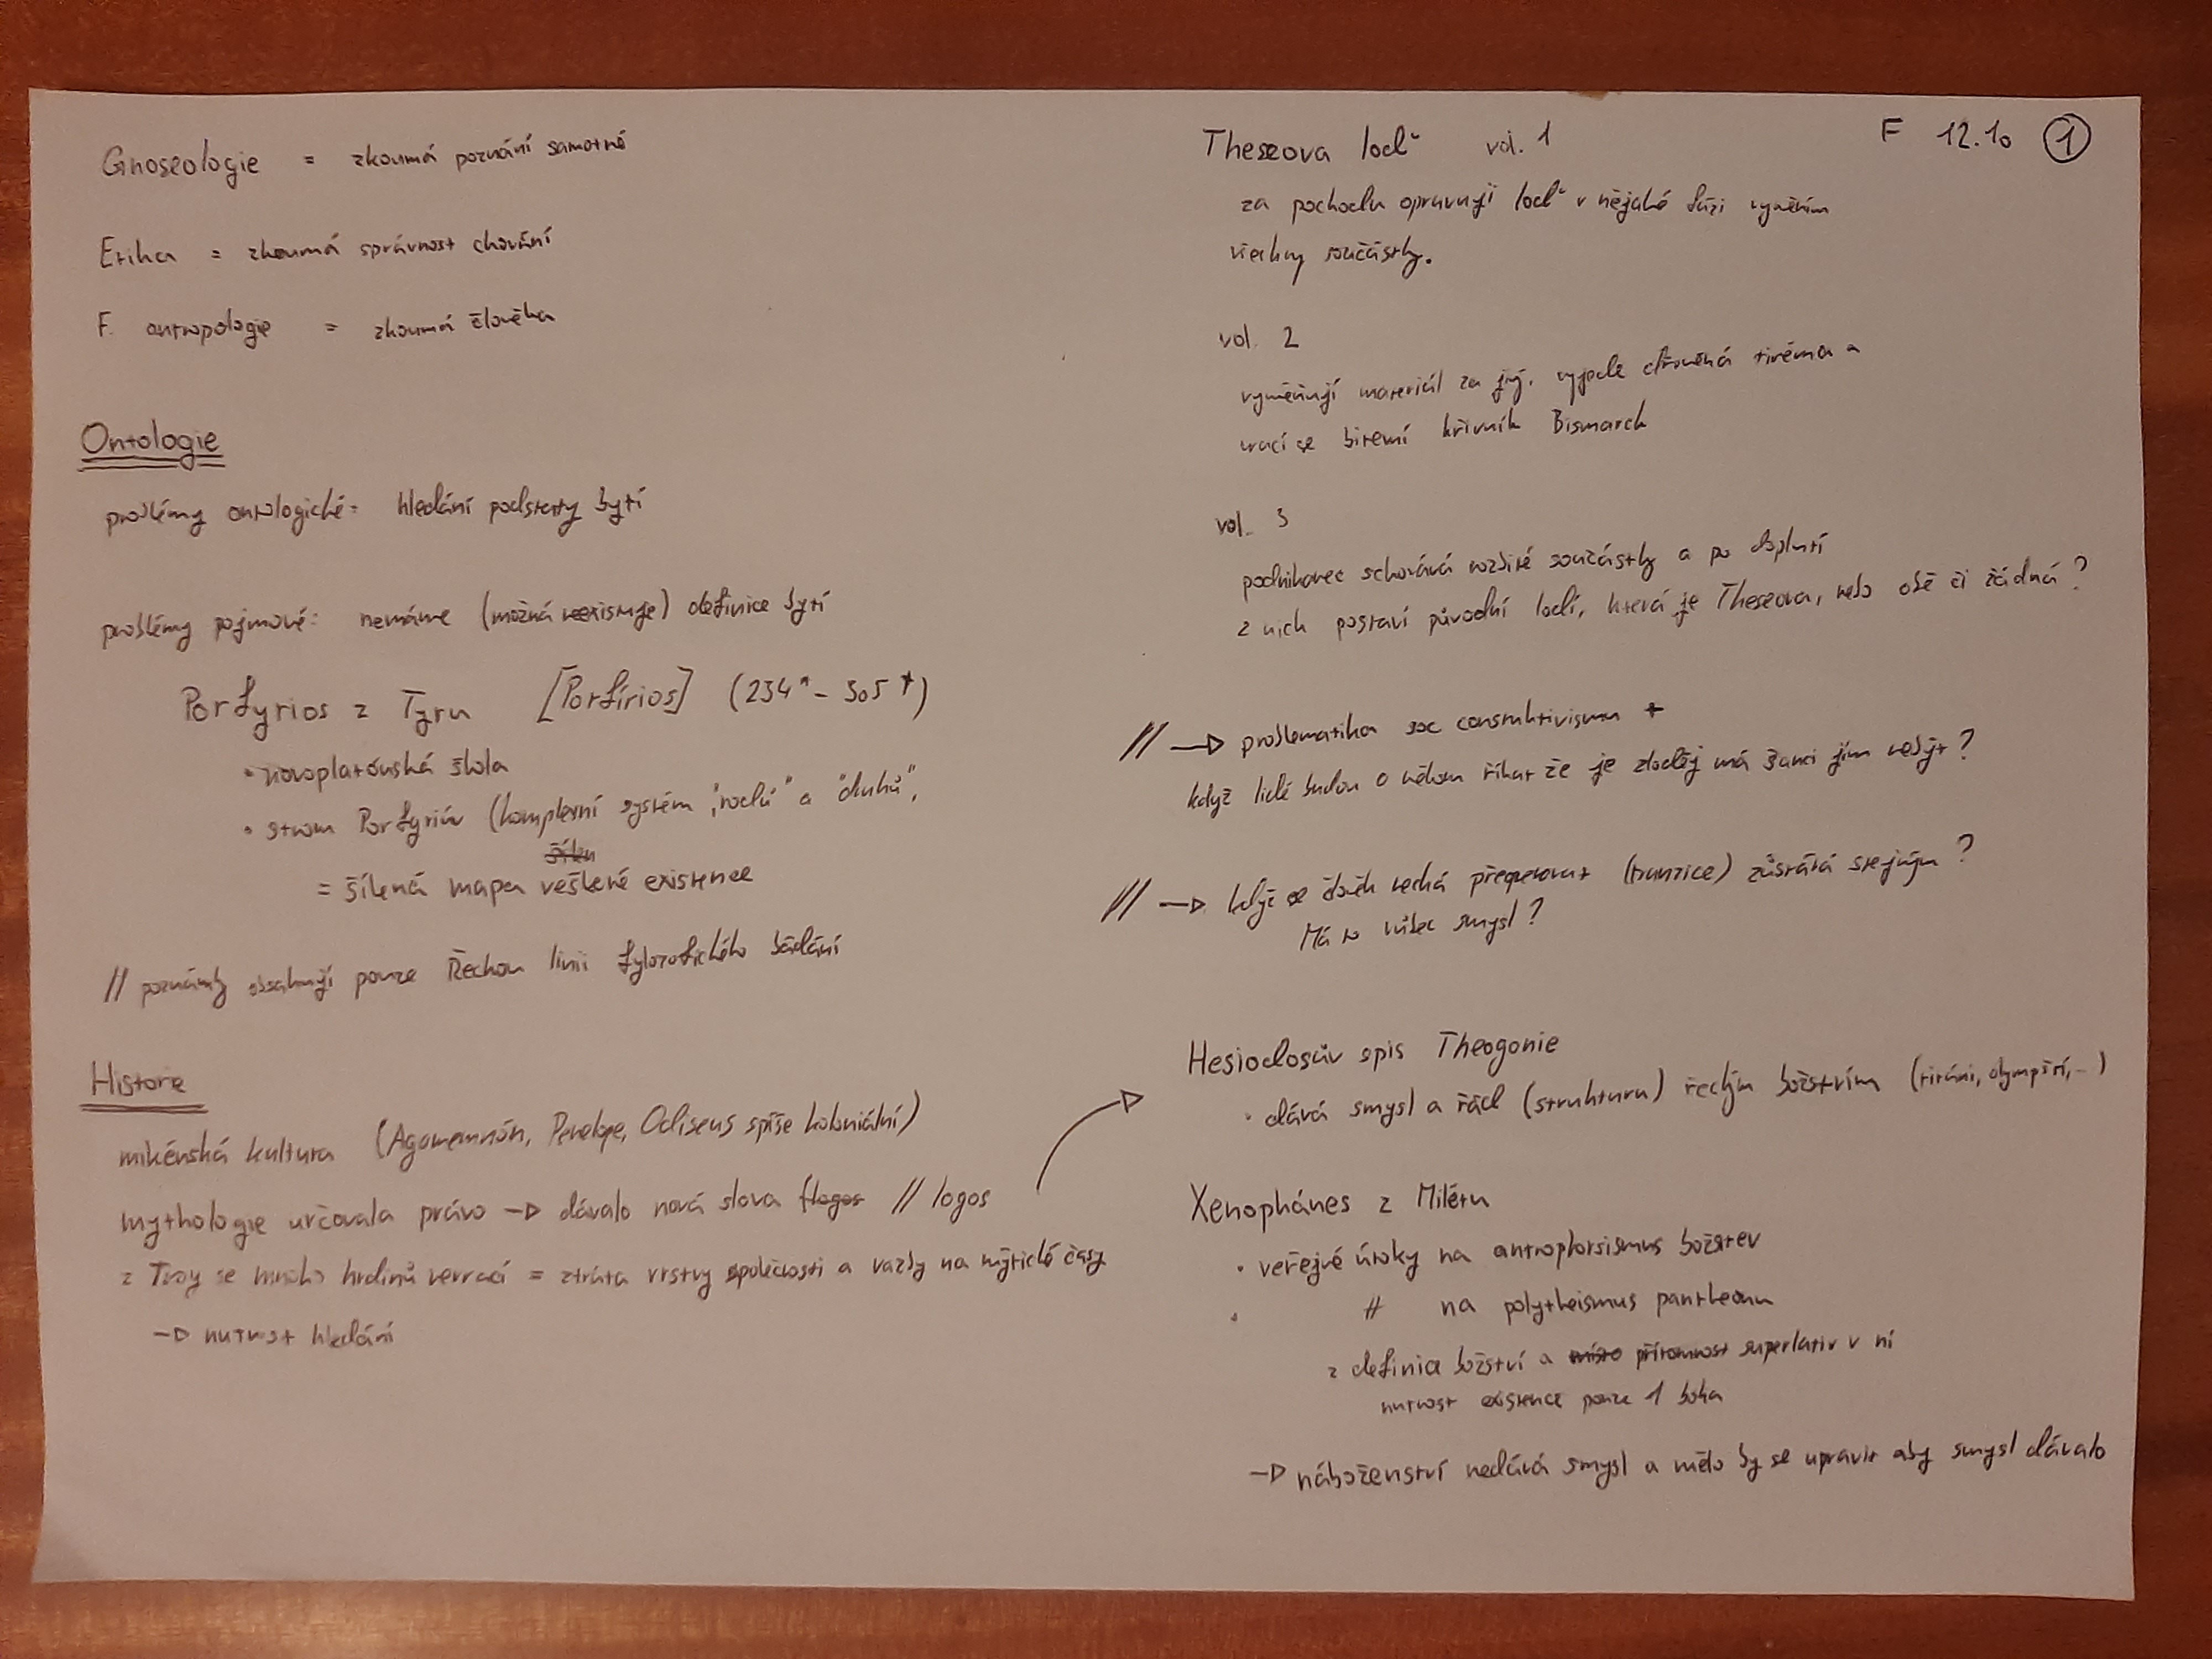 Gnoseologie = zkoumá poznání samotné
Etika = zkoumá správnost chování
F. antropologie = zkoumá člověka
Ontologie
problémy ontologické = hledání podstaty bytí
problémy pojmové: nemáme (možná neexistuje) definice bytí
Porfyrios z Tyru [Porfírios] (234* - 305 †)
• novoplatónská škola
• strom Porfyriův (komplexní systém "rodů" a "druhů",
= šílená mapa veškeré existence
// poznámky obsahují pouze Řeckou linii fylozofického bádání
Historie
mikénská kultura (Agamemnón, Penelope, Odiseus spíše koloniální)
mythologie určovala právo → dávalo nová slova flogos // logos
z Troy se mnoho hrdinů nevrací = ztráta vrstvy společnosti a vazby na mýtické časy
→ nutnost hledání
F 12.10 1
Theseova loď vol. 1
za pochodu opravuji loď v nějaké fázi vyměním
všechny součástky.
vol. 2
vyměňuji materiál za jiný. vyjede dřevěná tiréma a
vrací se bitevní křižník Bismarck
vol. 3
podnikavec schovává rozbité součástky a po doplutí
z nich postaví původní lodí, která je Theseova, nebo obě či žádná?
// → problematika soc construktivismu +
když lidé budou o někom říkat že je zloděj má šanci jím nebýt?
// → když se člověk nechá přeoperovat (tranzice) zůstává stejným?
Má to vůbec smysl?
Hesiodosův spis Theogonie
• dává smysl a řád (struktura) řeckým božstvím (titáni, olympští, ...)
Xenophánes z Milétu
• veřejné útoky na antroplorsismus božstev
• // na polytheismus pantheonu
z definice božství a místo přítomnost superlativ v ní
nutnost existence pouze 1 boha
→ náboženství nedává smysl a mělo by se upravit aby smysl dávalo